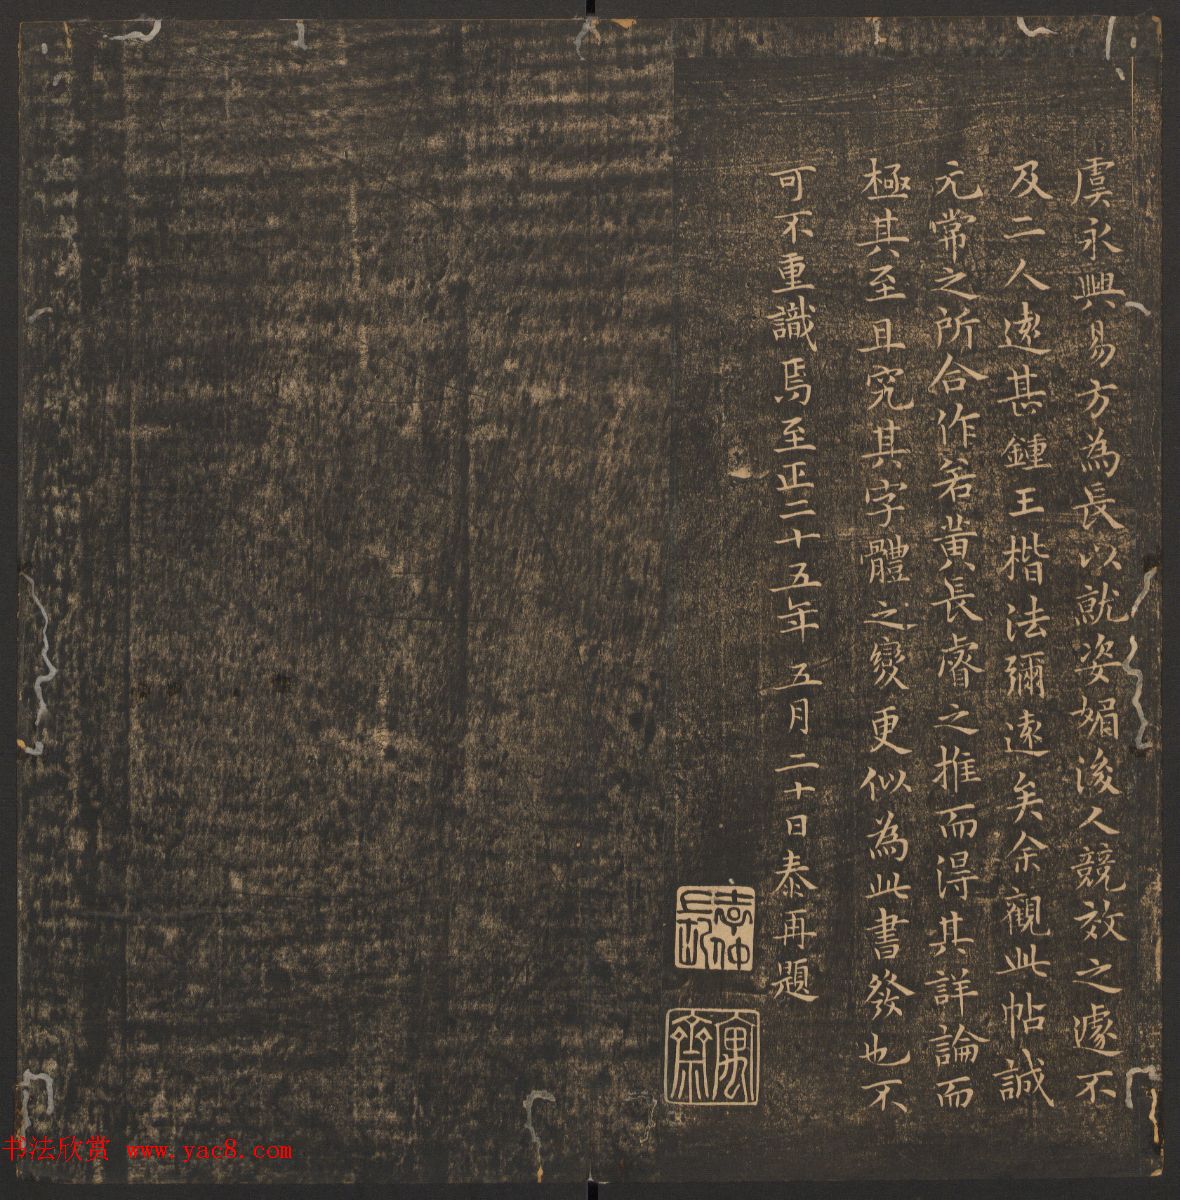 虞永興易方為長以就姿媚後人競效之遽不
及二人遠甚鍾王楷法彌遠矣余觀此帖誠
元常之所合作若黄長睿之推而得其詳論而
極其至且究其字體之變更似為此書發也不
可不重識焉至正二十五年五月二十日泰再題
志仲
寓齋
书法欣赏 www.yac8.com